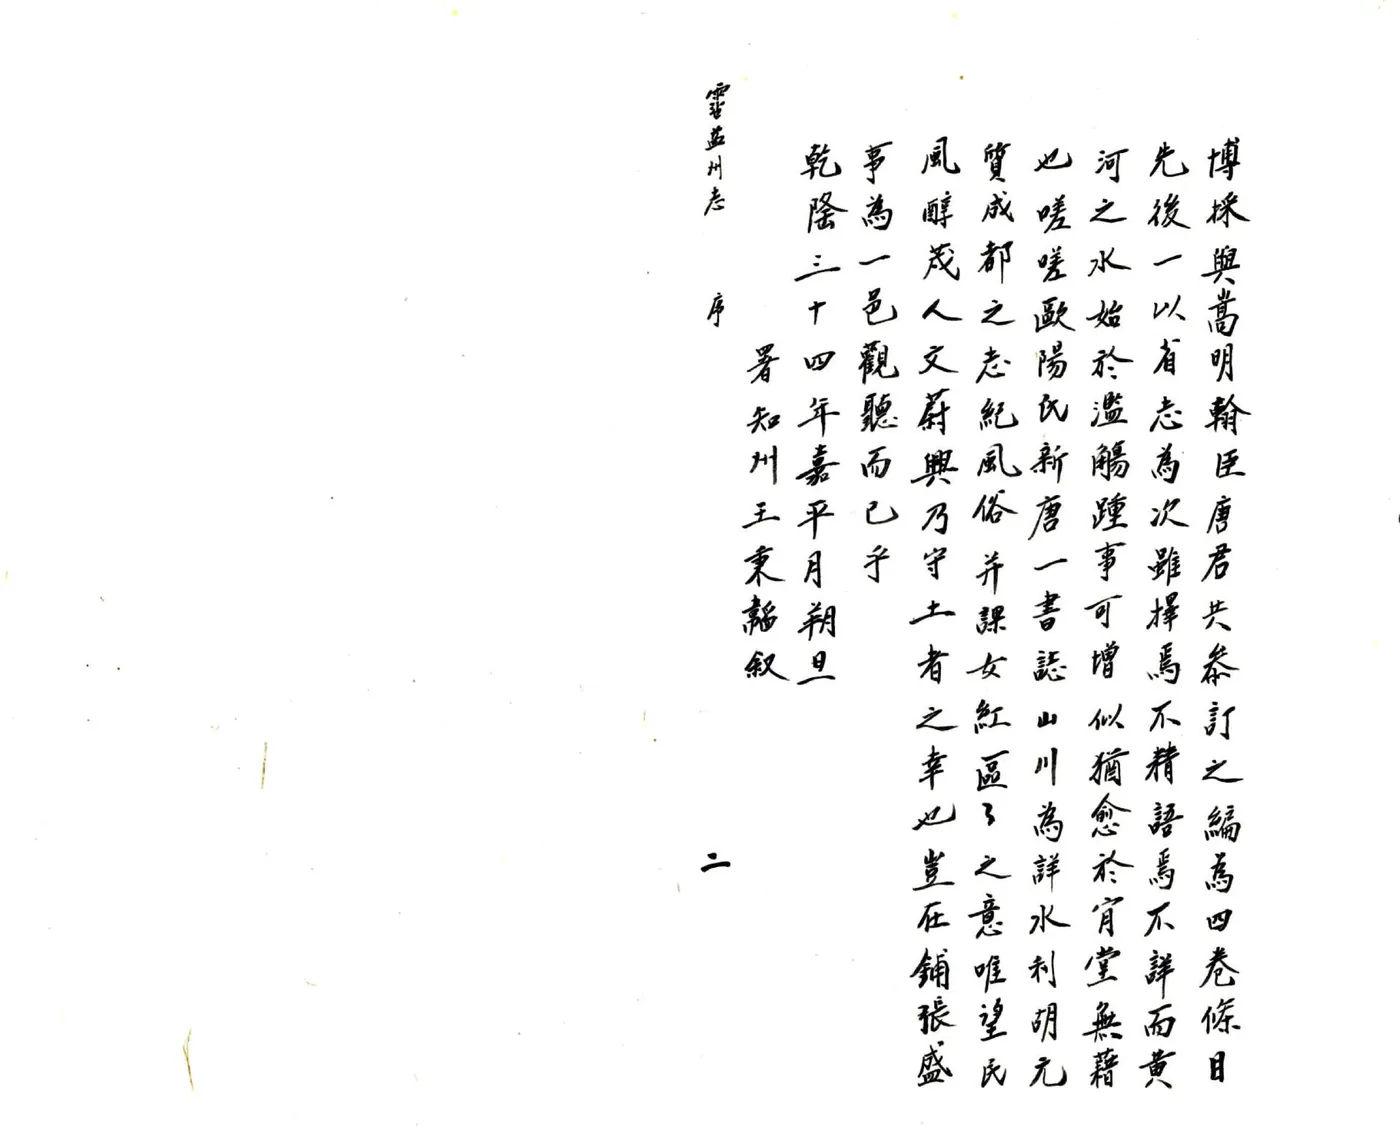 博採與嵩明翰臣唐君共叅訂之編為四卷條目
先後一以省志為次雖擇焉不精語焉不詳而黄
河之水始於濫觴踵事可增似猶愈於肓堂無藉
也嗟嗟歐陽氏新唐一書誌山川為詳水利胡元
質成都之志紀風俗并課女紅區〻之意唯望民
風醇茂人文蔚興乃守土者之幸也豈在鋪張盛
事為一邑觀聽而已乎
乾隆三十四年嘉平月朔旦
署知州王秉韜叙
霑益州志 序 二